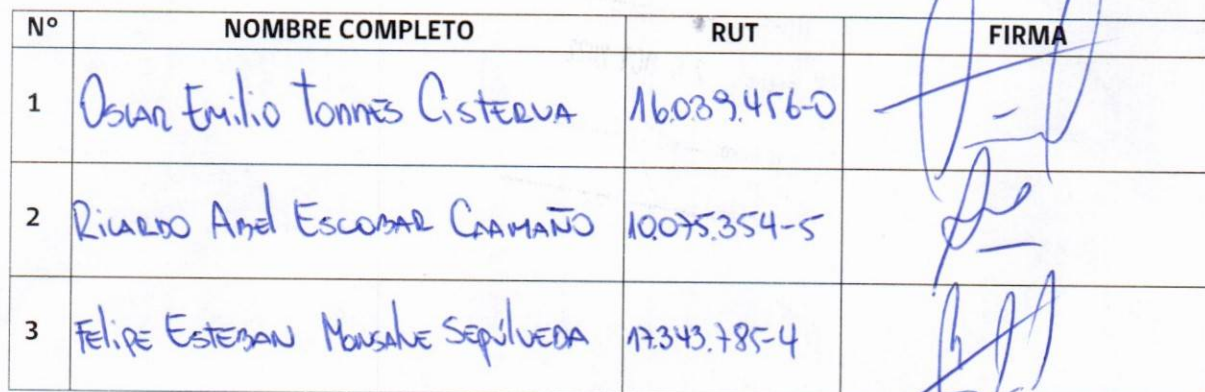 Nº NOMBRE COMPLETO RUT FIRMA
1 Oscar Emilio Torres Cisterna 16.039.456-0
2 Ricardo Abel Escobar Caamaño 10.075.354-5
3 Felipe Esteban Monsalve Sepúlveda 17.343.785-4